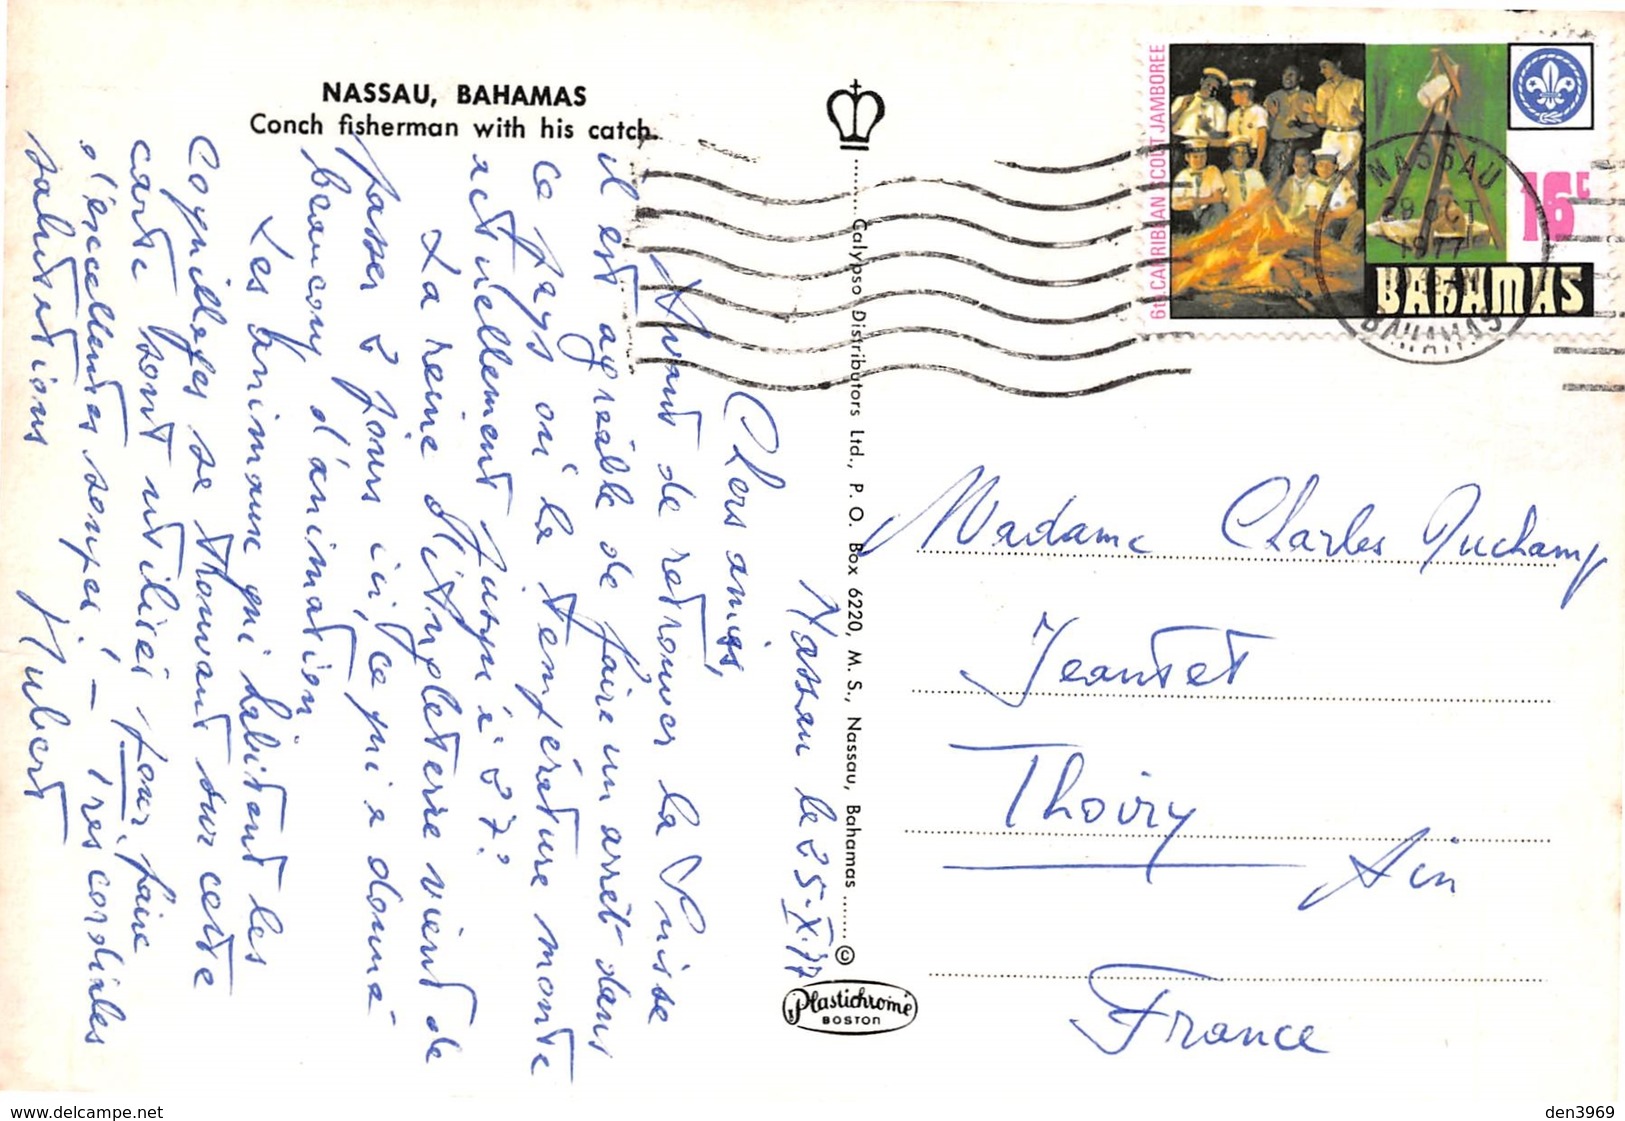 NASSAU, BAHAMAS
Conch fisherman with his catch.
6th CARIBBEAN SCOUT JAMBOREE
16c
BAHAMAS
NASSAU
28 OCT
1977
BAHAMAS
Calypso Distributors Ltd., P. O. Box 6220, M. S., Nassau, Bahamas
©
Plastichrome
BOSTON
Nassau le 25.X.77
Chers amis,
Avant de retrouver la Suisse
il est agréable de faire un arrêt dans
ce pays où la température monte
actuellement jusqu'à 27°.
La reine d'Angleterre vient de
passer 2 jours ici, ce qui a donné
beaucoup d'animation
Les animaux qui habitent les
Coquillages se trouvant sur cette
carte sont utilisés pour faire
d'excellentes soupes! - Très cordiales
salutations
Hubert
Madame Charles Duchamp
Jeantet
Thoiry
Ain
France
www.delcampe.net
den3969